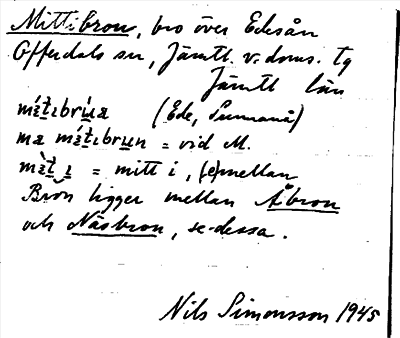 Mittibron, bro över Edesån
Offerdals sn, Jämtl. v. doms. tg
Jämtl län
mé̱tıbrùa (Ede, Sunnanå)
ma mé̱tıbrun = vid M.
mè̱t ı = mitt i, (e)mellan
Bron ligger mellan Åbron
och Näsbron, se dessa.
Nils Simonsson 1945